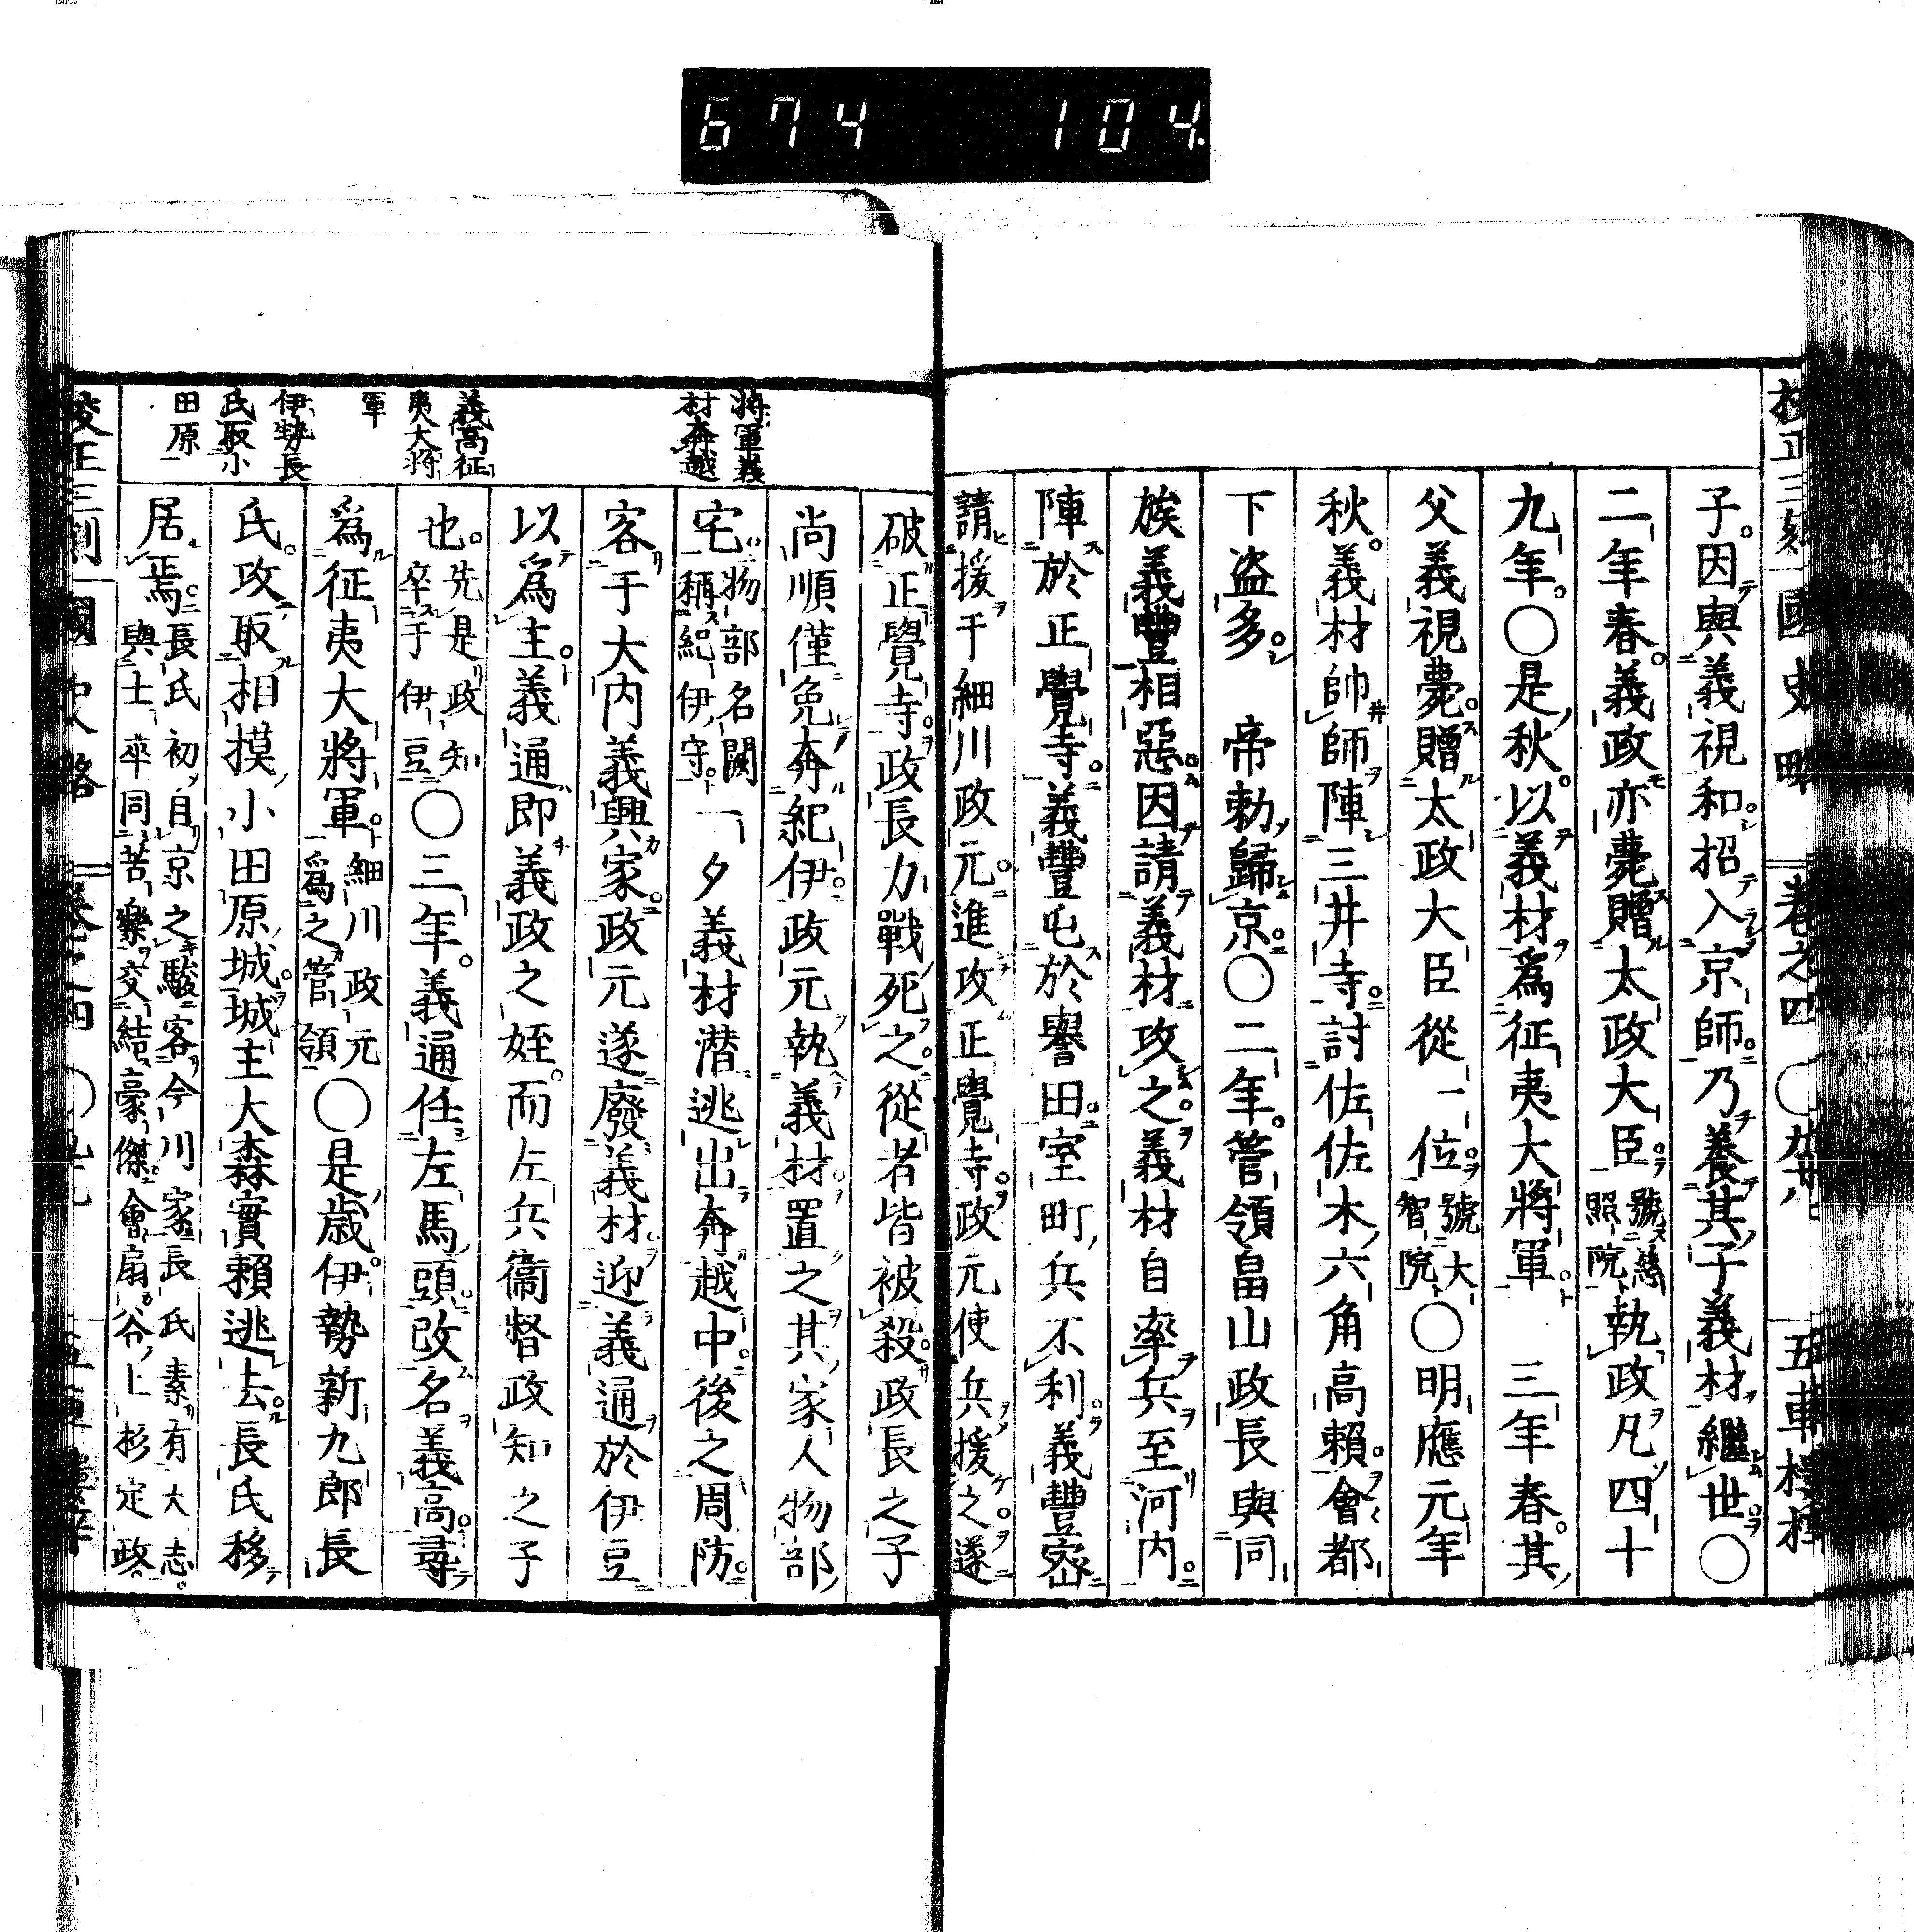 674 104
子。因與義視和。招入京師。乃養其子義材繼世。○
二年春。義政亦薨。贈太政大臣。號慈照院執政凡四十
九年。○是秋。以義材爲征夷大將軍。 三年春。其
父義視薨。贈太政大臣從一位。號大智院○明應元年
秋。義材帥師陣三井寺。討佐佐木六角高賴。會都
下盜多。 帝勅歸京。○二年。管領畠山政長與同
族義豐相惡。因請義材攻之。義材自率兵至河内。
陣於正覺寺。義豐屯於譽田。室町兵不利。義豐密
請援于細川政元。進攻正覺寺。政元使兵援之。遂
破正覺寺。政長力戰死之。從者皆被殺。政長之子
尚順僅免。奔紀伊。政元執義材。置之其家人物部
宅。物部名闕稱紀伊守。一夕義材潜逃出奔越中。後之周防。
客于大内義興家。政元遂廢義材。迎義通於伊豆
以爲主。義通即義政之姪。而左兵衞督政知之子
也。先是政知卒于伊豆○三年。義通任左馬頭。改名義高。尋
爲征夷大將軍。細川政元爲之管領○是歲。伊勢新九郎長
氏。攻取相摸小田原城。城主大森實賴逃去。長氏移
居焉。長氏初自京之駿客今川家。長氏素有大志。與士卒同苦樂。交結豪傑。會扇谷上杉定政
將軍義材奔越
義高征夷大將軍
伊勢長氏取小田原
國史略
卷之四